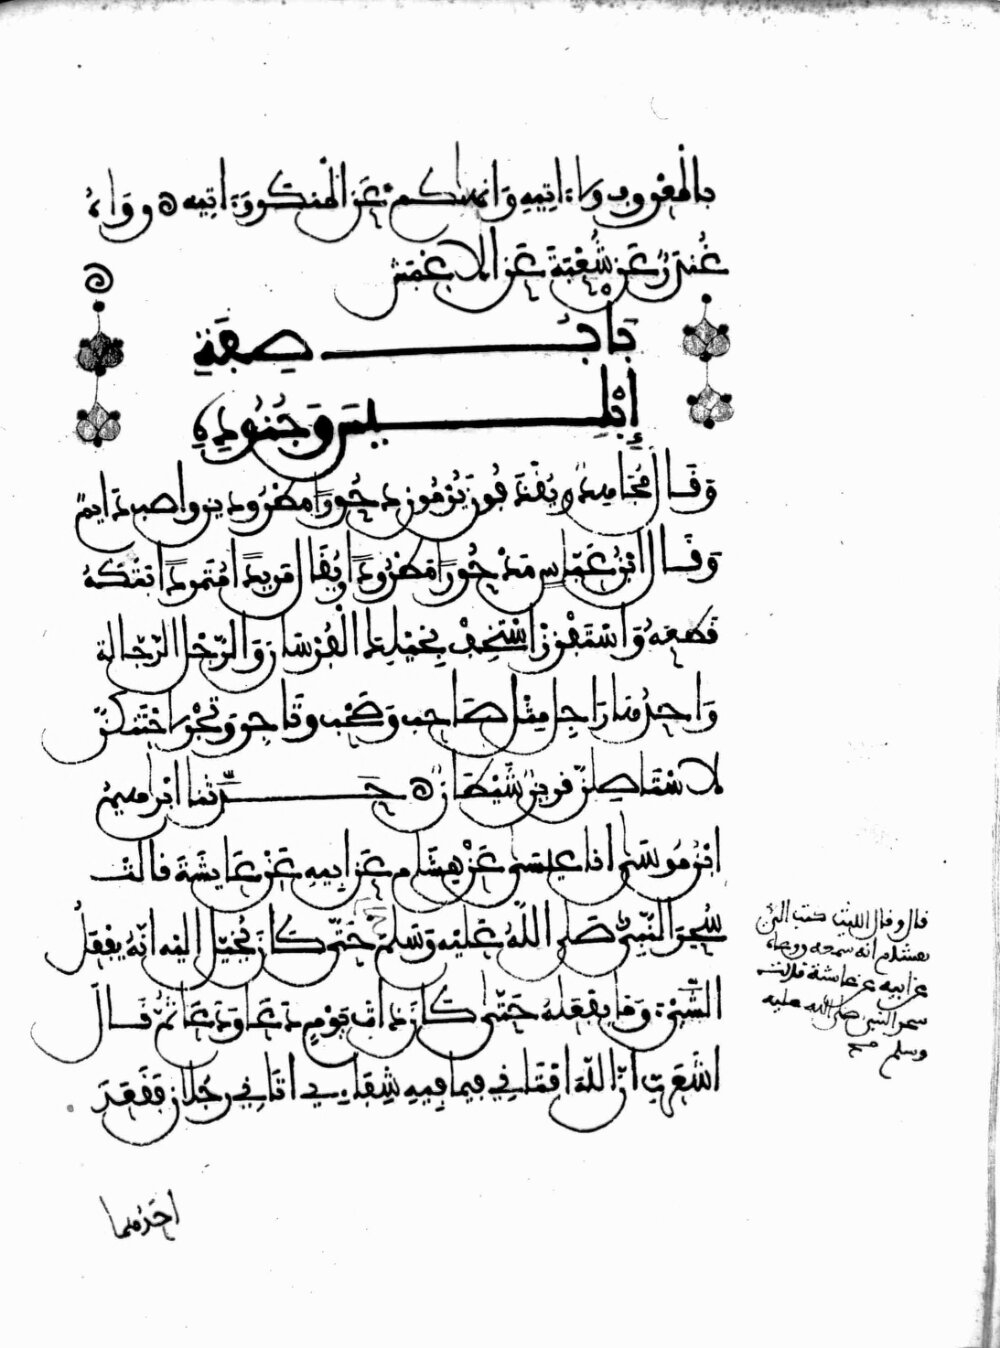 بالمعروف ولا ءاتيه وانهاكم عن المنكر وءاتيه ورواه
غندر عن شعبة عن الاعمش
باب صفة
إبليس وجنوده
وقال مجاهد ويقذفون يرمون دحورا مطرودين واصب دايم
وقال ابن عباس مدحورا مطرودا ويقال مريدا متمردا بتكه
قطعه واستفزز استخف بخيلك الفرسان والرجل الرجالة
واحدها راجل مثل صاحب وصحب وتاجر وتجر لاحتنكن
لاستاصلن قرين شيطان حدثنا ابراهيم
ابن موسى انا عيسى عن هشام عن ابيه عن عايشة قالت
سحر النبي صلى الله عليه وسلم حتى كان يخيل اليه انه يفعل
الشيء وما يفعله حتى كان ذات يوم دعا ودعا ثم قال
اشعرت ان الله افتاني فيما فيه شفاءي اتاني رجلان فقعد
احدهما
قال وقال الليث كتب الي
هشام انه سمعه ووعاه
عن ابيه عن عائشة قالت
سحر النبي صلى الله عليه
وسلم صح